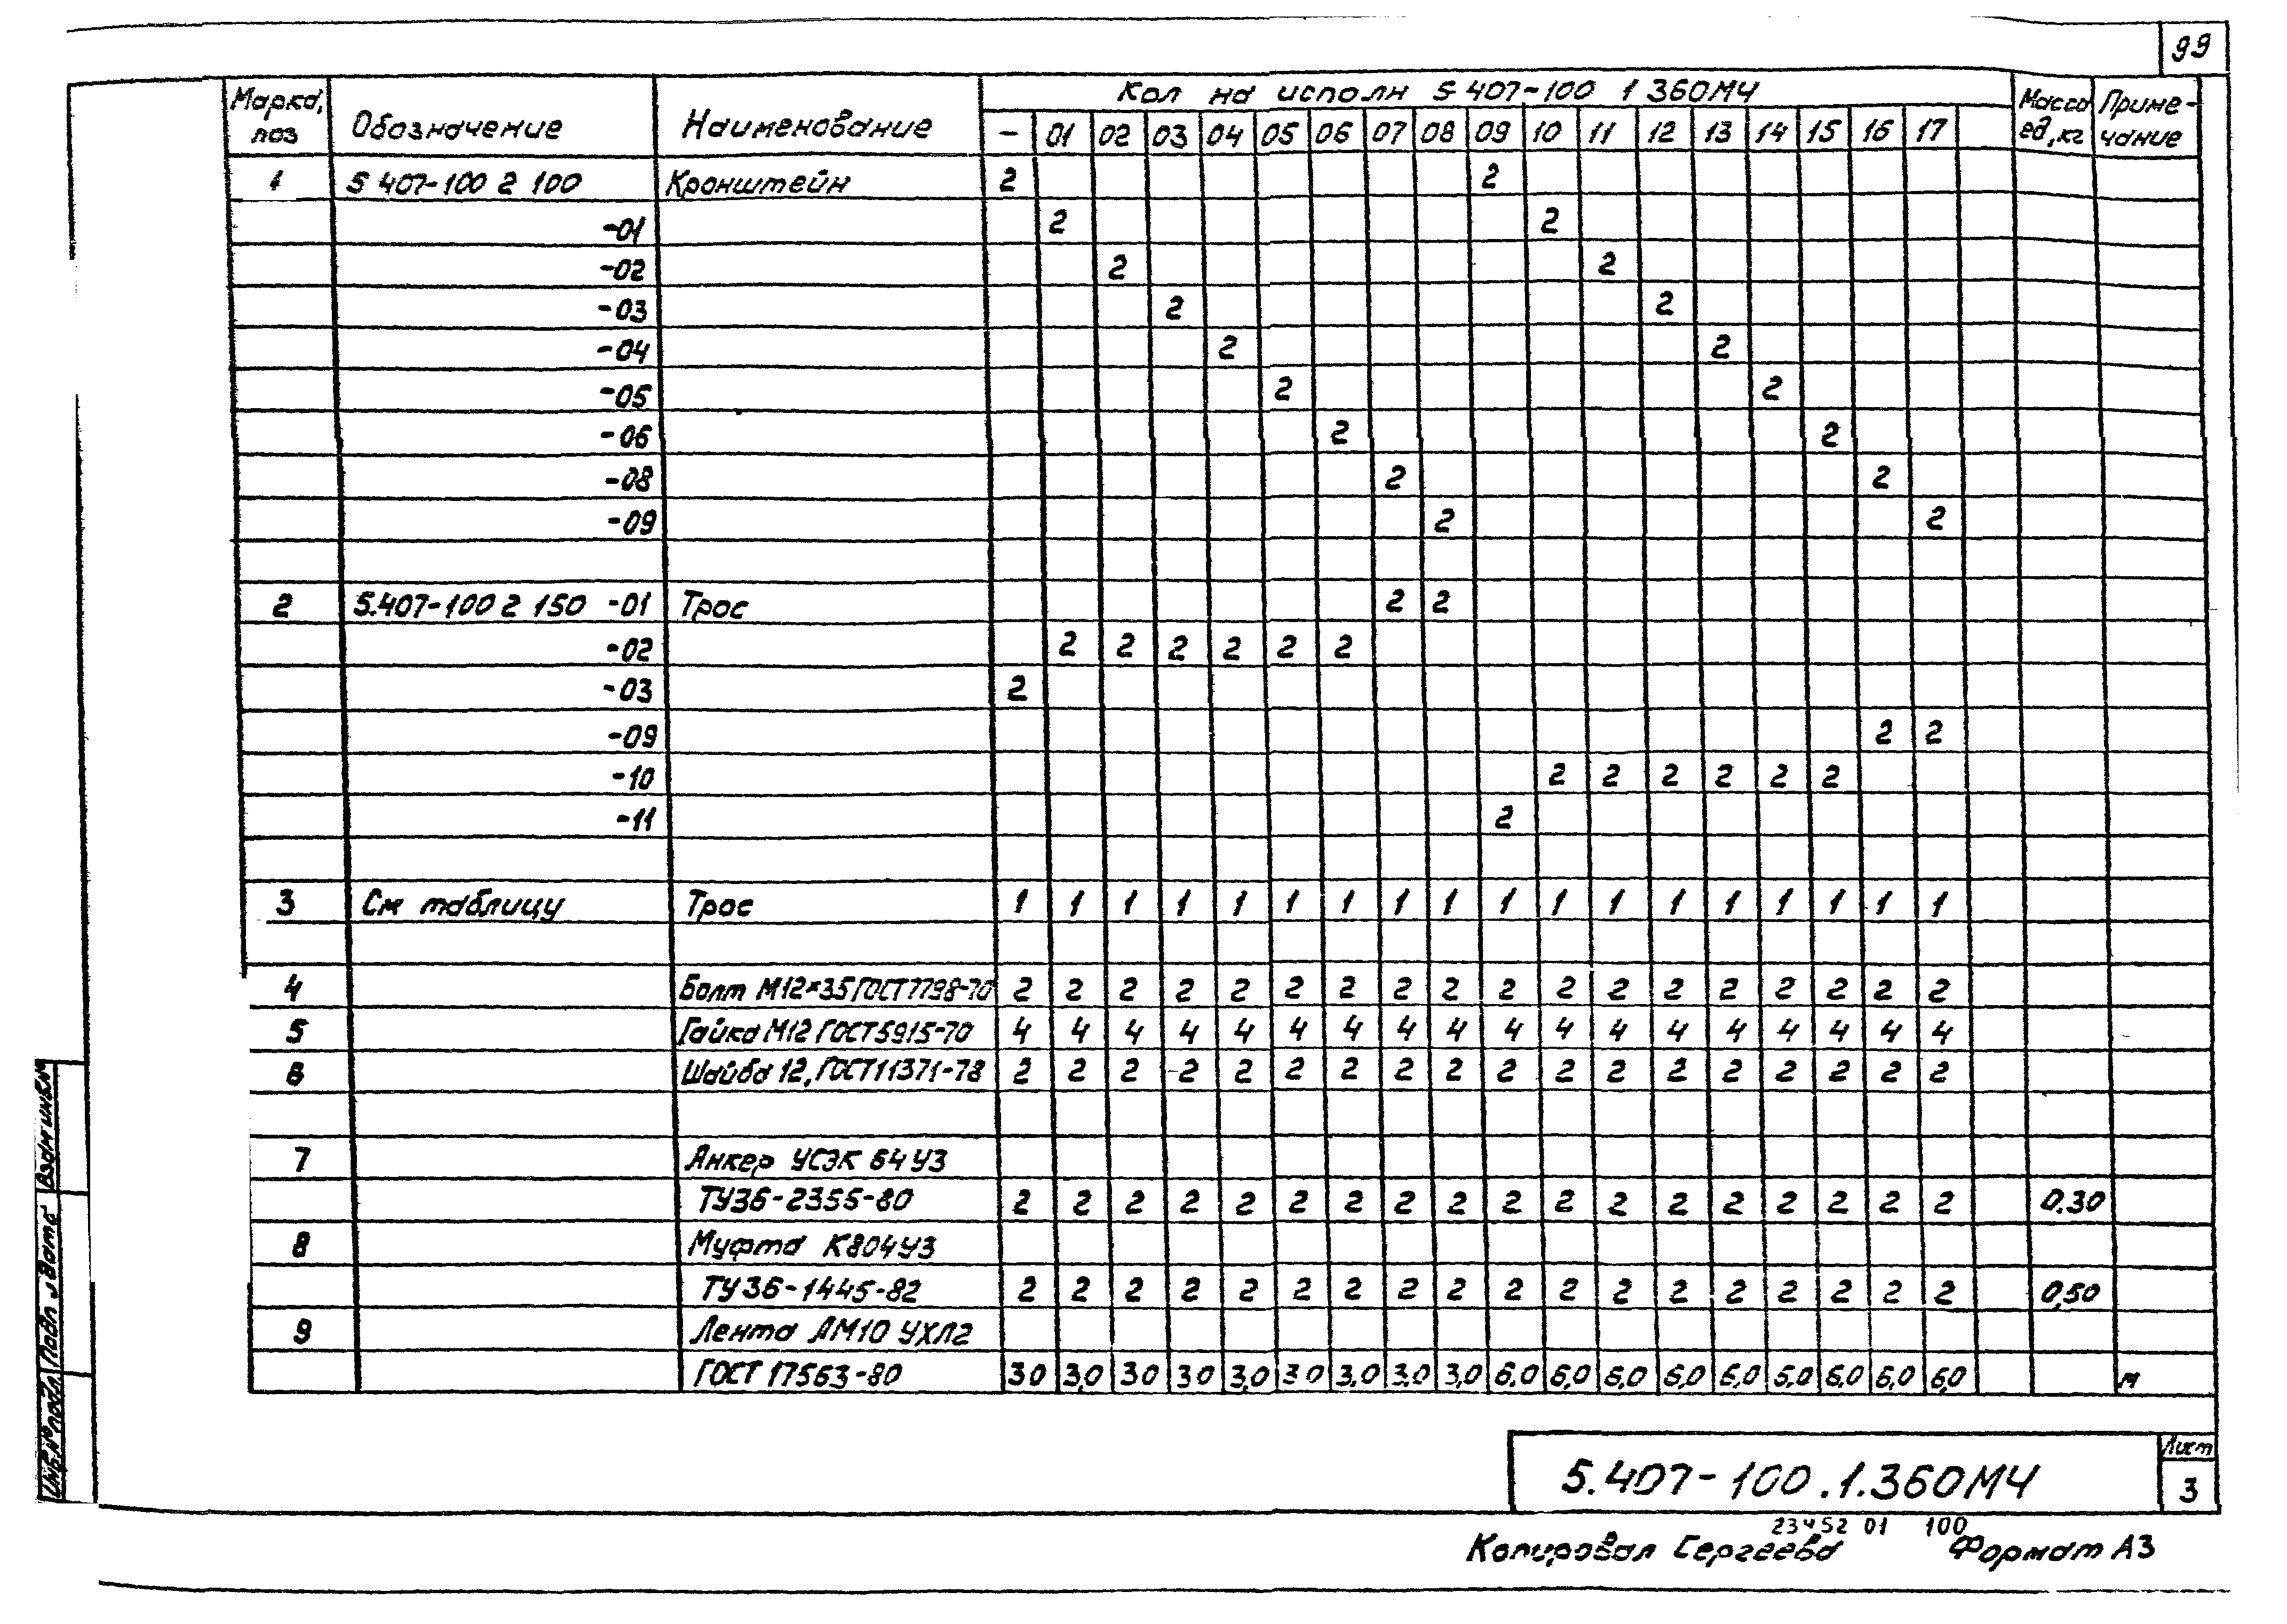 99
Марка, поз Обозначение Наименование Кол на исполн 5 407-100 1 360МЧ Масса ед, кг Приме- чание
– 01 02 03 04 05 06 07 08 09 10 11 12 13 14 15 16 17
1 5 407-100 2 100 Кронштейн 2 2
-01 2 2
-02 2 2
-03 2 2
-04 2 2
-05 2 2
-06 2 2
-08 2 2
-09 2 2
2 5.407-100 2 150 -01 Трос 2 2
-02 2 2 2 2 2 2
-03 2
-09 2 2
-10 2 2 2 2 2 2
-11 2
3 См таблицу Трос 1 1 1 1 1 1 1 1 1 1 1 1 1 1 1 1 1 1
4 Болт М12×35 ГОСТ 7798-70 2 2 2 2 2 2 2 2 2 2 2 2 2 2 2 2 2 2
5 Гайка М12 ГОСТ 5915-70 4 4 4 4 4 4 4 4 4 4 4 4 4 4 4 4 4 4
6 Шайба 12, ГОСТ 11371-78 2 2 2 2 2 2 2 2 2 2 2 2 2 2 2 2 2 2
7 Анкер УСЭК 64 У3
ТУ36-2355-80 2 2 2 2 2 2 2 2 2 2 2 2 2 2 2 2 2 2 0.30
8 Муфта К804У3
ТУ36-1445-82 2 2 2 2 2 2 2 2 2 2 2 2 2 2 2 2 2 2 0,50
9 Лента АМ10 УХЛ2
ГОСТ 17563-80 3 0 3,0 3 0 3 0 3,0 3 0 3,0 3.0 3,0 6.0 6,0 6,0 6,0 6,0 6,0 6,0 6,0 6,0 м
Взам инв №
Подп и дата
Инв № подл
5.407-100.1.360МЧ
Лист
3
23452 01 100
Копировал Сергеева Формат А3